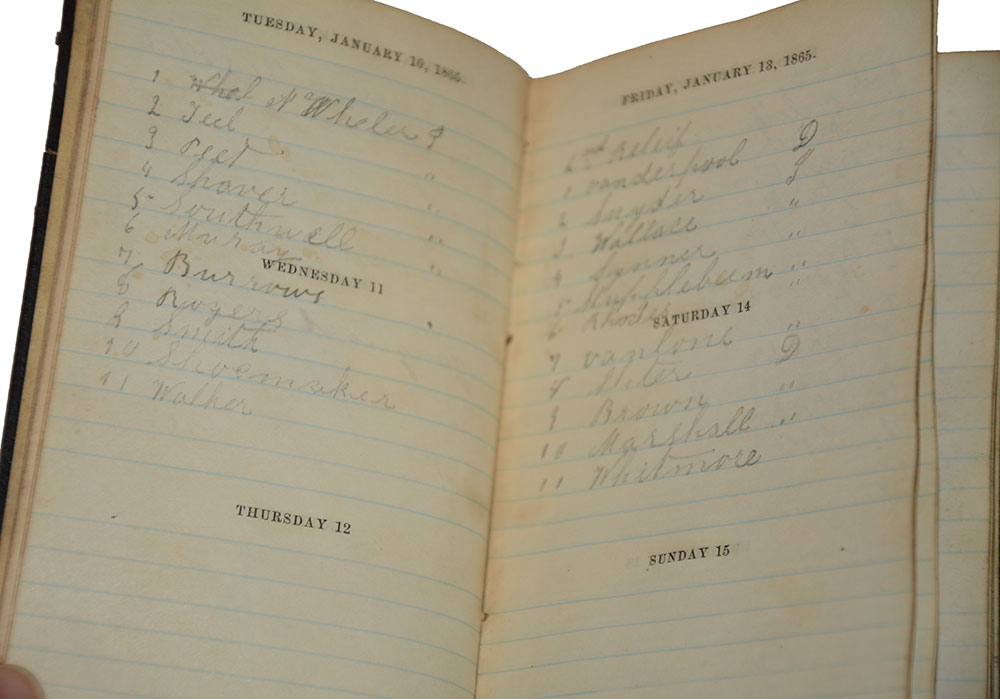 TUESDAY, JANUARY 10, 1865.
1 Wheler
2 Teel
3 Peet "
4 Shaver "
5 Southwell "
6 Muray "
WEDNESDAY 11
7 Burrows
8 Rogers
9 Smith
10 Shoemaker
11 Walker
THURSDAY 12
FRIDAY, JANUARY 13, 1865.
2nd Releif
1 vanderpool D
2 Snyder
3 Wallace "
4 "
5 "
6 Rhodes "
SATURDAY 14
7 "
8 D
9 Brown "
10 Marshall "
11 Whitmore
SUNDAY 15